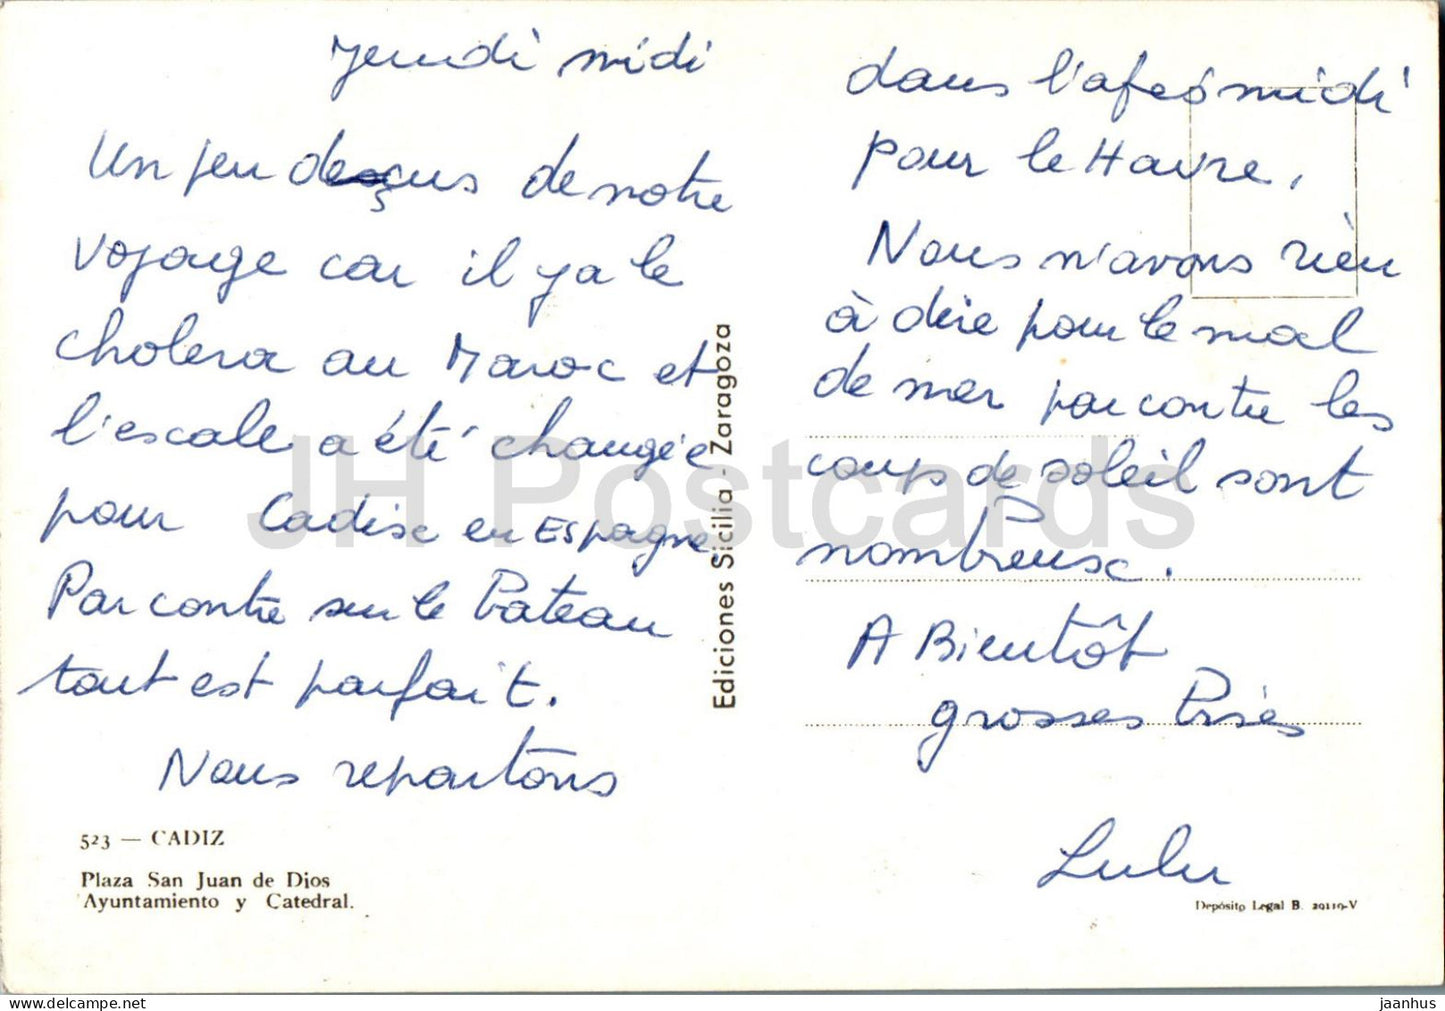 Jeudi midi
Un peu deçus de notre
voyage car il y a le
cholera au Maroc et
l'escale a été changée
pour Cadise en Espagne.
Par contre sur le Bateau
tout est parfait.
Nous repartons
523 — CADIZ
Plaza San Juan de Dios
Ayuntamiento y Catedral.
Ediciones Sicilia - Zaragoza
dans l'après midi
pour le Havre,
Nous n'avons rien
à dire pour le mal
de mer par contre les
coups de soleil sont
nombreuse.
A Bientôt
grosses Bises
Lulu
Depósito Legal B. 20110-V
JH Postcards
jaanhus